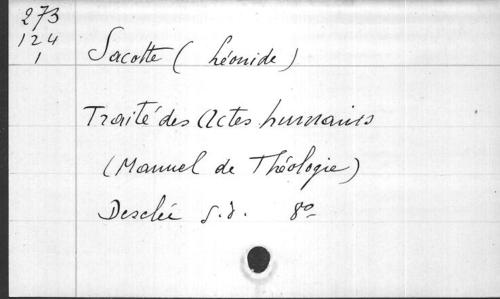 273
124
1
Sacotte (Léonide)
Traité des Actes humains
(Manuel de Théologie)
Desclée s.d. 8º